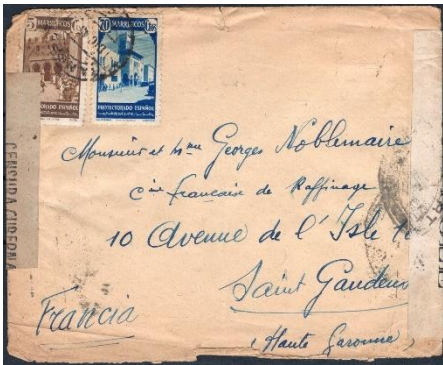 5 MARRUECOS
70 MARRUECOS
PROTECTORADO ESPAÑOL
PROTECTORADO ESPAÑOL
Monsieur et Mme Georges Noblemaire
Cie Française de Raffinage
10 Avenue de l'Isle
Saint Gaudens
Francia
(Haute Garonne)
CENSURA GUBERNA